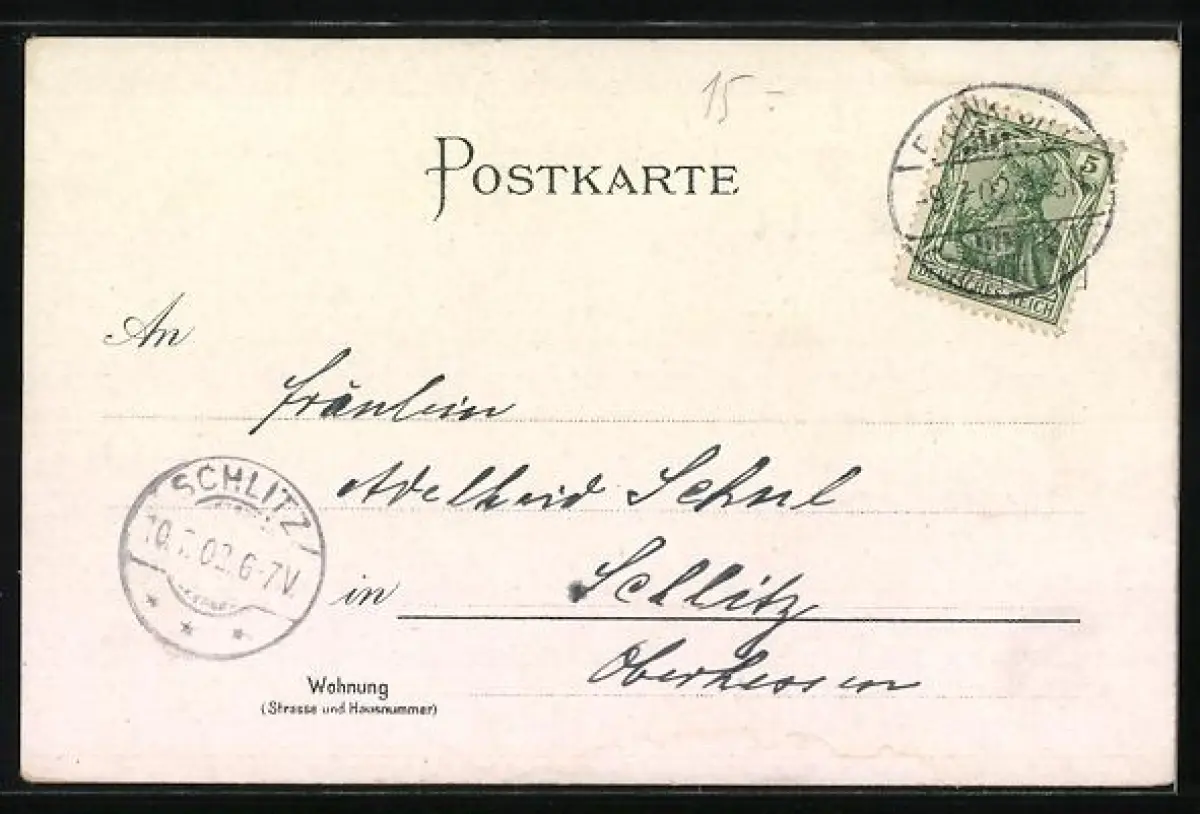 15-
POSTKARTE
5
-9. 02
DEUTSCHES REICH
An
Fräulein
Adelheid
SCHLITZ
10. 02. 6-7V.
in Schlitz
Oberhessen
Wohnung
(Strasse und Hausnummer)